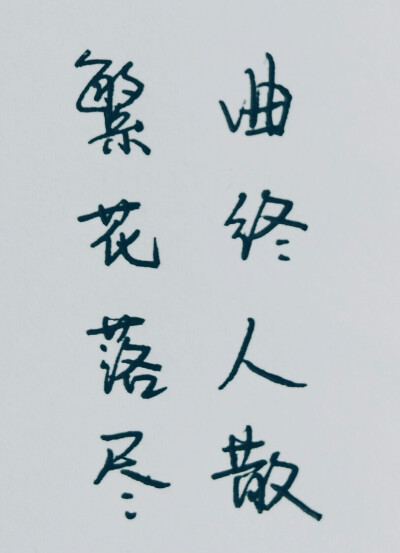 曲终人散
繁花落尽